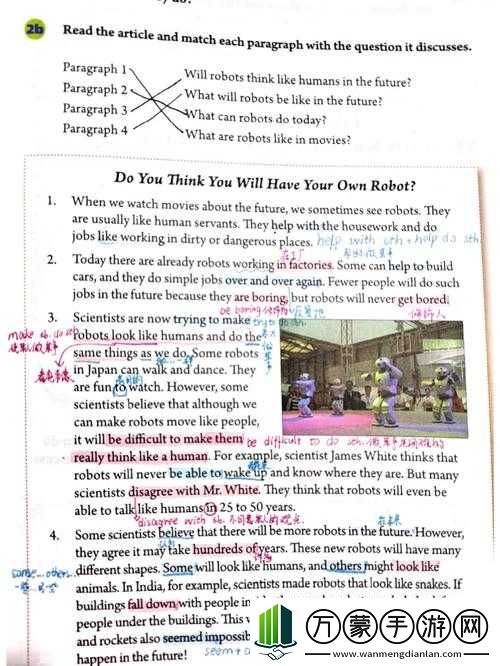 2b Read the article and match each paragraph with the question it discusses.
Paragraph 1
Paragraph 2
Paragraph 3
Paragraph 4
Will robots think like humans in the future?
What will robots be like in the future?
What can robots do today?
What are robots like in movies?
Do You Think You Will Have Your Own Robot?
1. When we watch movies about the future, we sometimes see robots. They
are usually like human servants. They help with the housework and do
jobs like working in dirty or dangerous places. help with sth = help do sth.
2. Today there are already robots working in factories. Some can help to build
cars, and they do simple jobs over and over again. Fewer people will do such
jobs in the future because they are boring, but robots will never get bored.
3. Scientists are now trying to make
try to do sth.
robots look like humans and do the
same things as we do. Some robots
in Japan can walk and dance. They
are fun to watch. However, some
scientists believe that although we
can make robots move like people,
it will be difficult to make them
be difficult to do sth.
really think like a human. For example, scientist James White thinks that
robots will never be able to wake up and know where they are. But many
scientists disagree with Mr. White. They think that robots will even be
able to talk like humans in 25 to 50 years.
disagree with sb. 不同意某人的观点.
4. Some scientists believe that there will be more robots in the future. However,
they agree it may take hundreds of years. These new robots will have many
some...others...
different shapes. Some will look like humans, and others might look like
animals. In India, for example, scientists made robots that look like snakes. If
buildings fall down with people in
people under the buildings. This
and rockets also seemed impossib
happen in the future!
万蒙手游网
www.wanmengdianlan.com